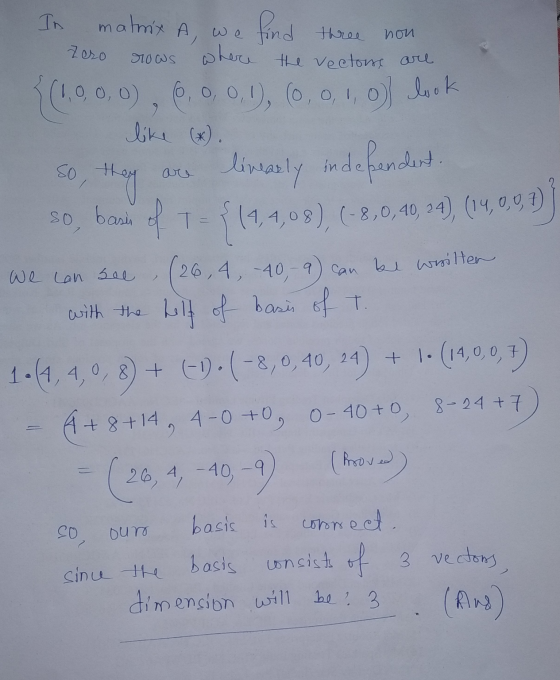 In matrix A, we find three non
zero rows where the vectors are
{(1,0,0,0), (0,0,0,1), (0,0,1,0)} look
like (*).
so, they are linearly independent.
so, basis of T = {(4,4,0 8), (-8,0,40,24), (14,0,0,7)}
we can see, (26,4,-40,-9) can be written
with the help of basis of T.
1·(4,4,0,8) + (-1)·(-8,0,40,24) + 1·(14,0,0,7)
= (4+8+14, 4-0+0, 0-40+0, 8-24+7)
= (26, 4, -40, -9) (Proved)
so, our basis is correct.
since the basis consists of 3 vectors,
dimension will be: 3. (Ans)